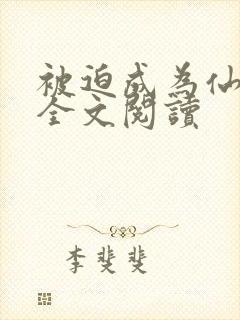 被迫成为仙
全文閱讀
李斐斐